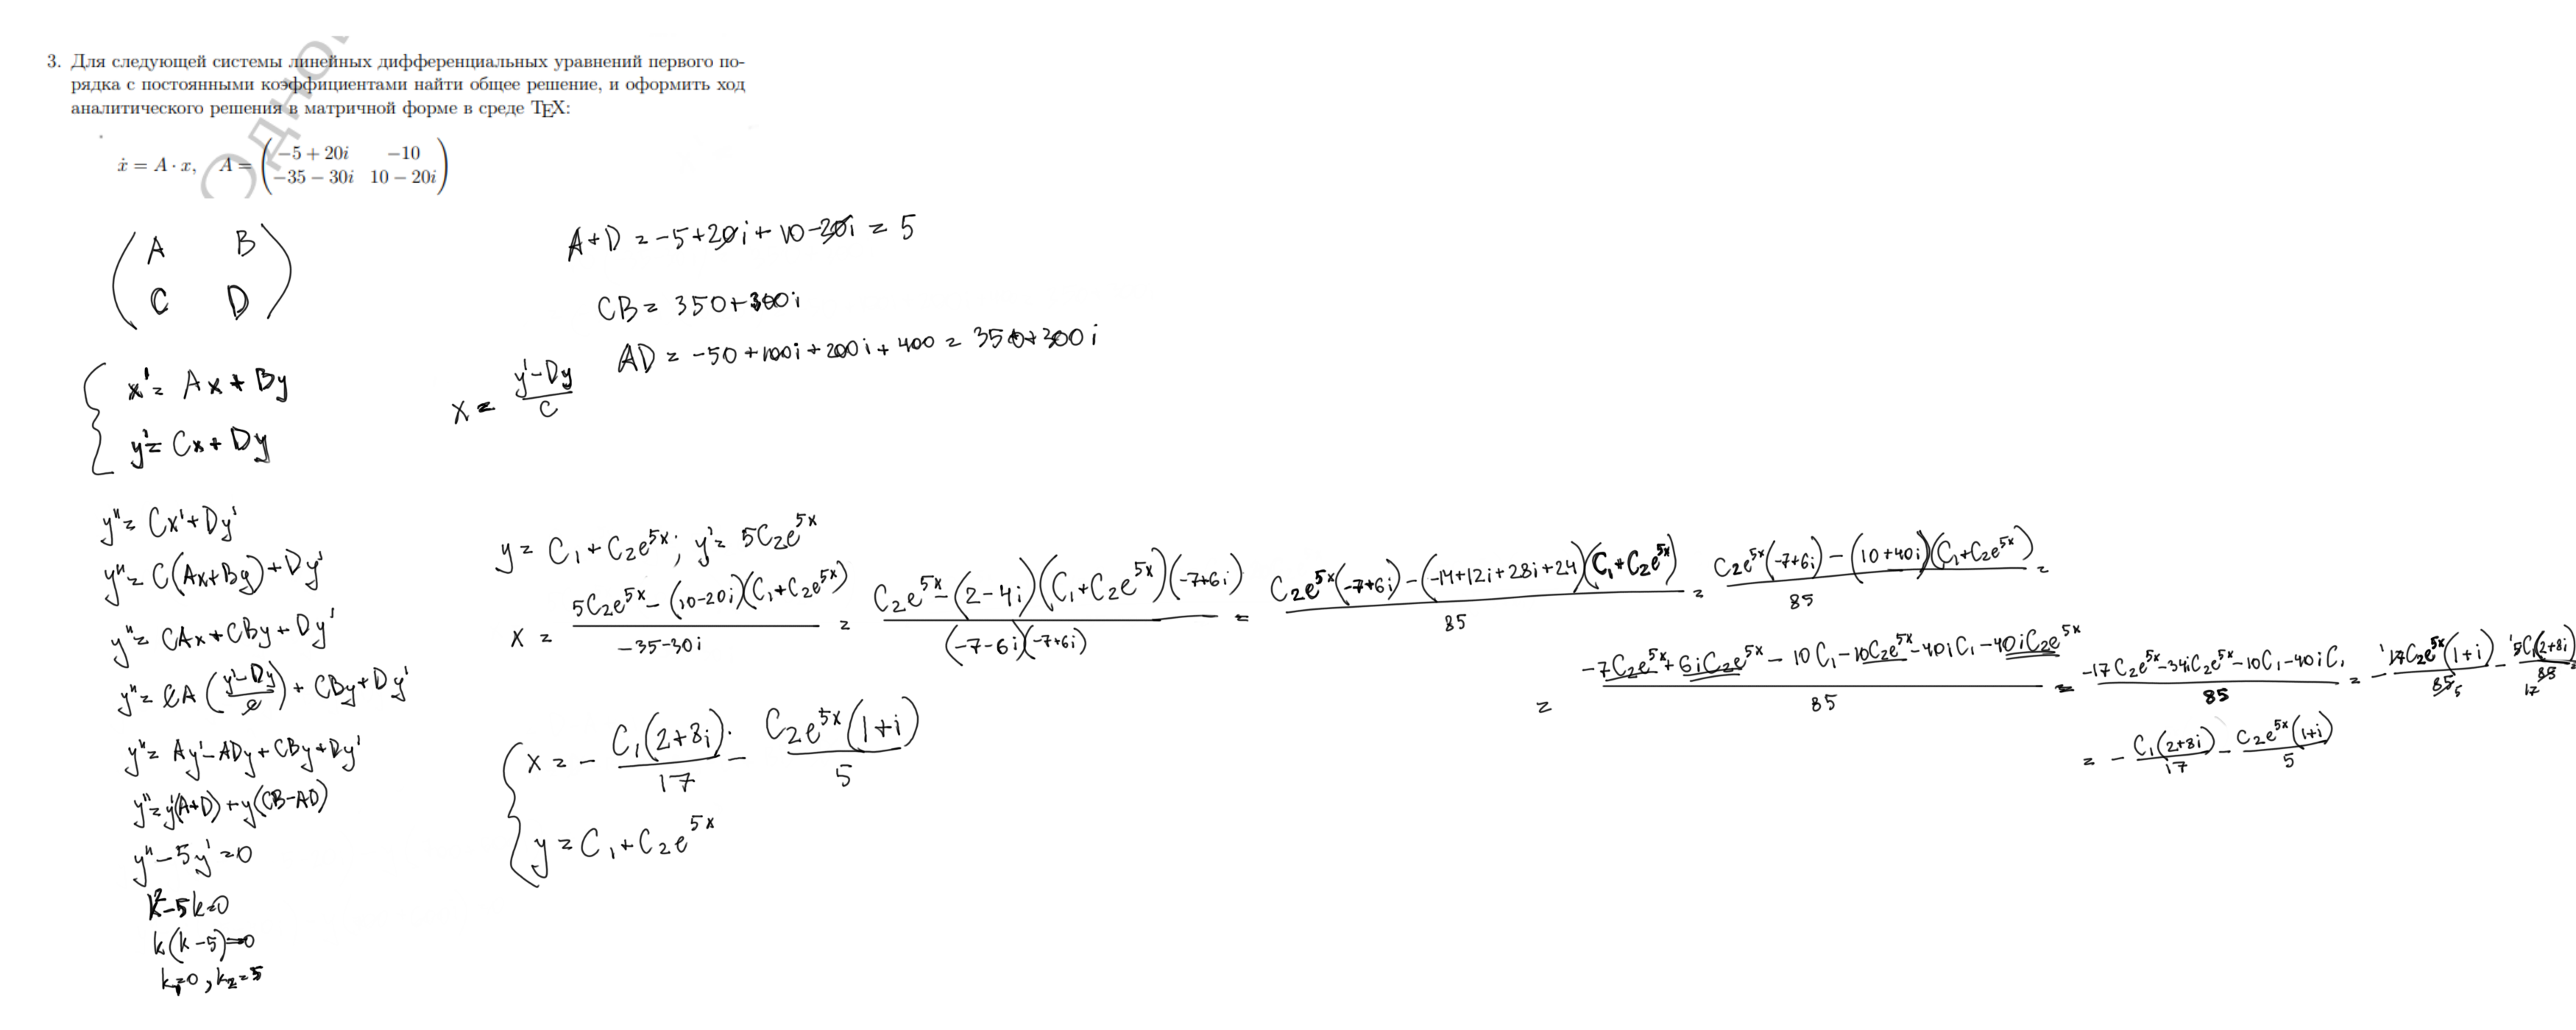 3. Для следующей системы линейных дифференциальных уравнений первого по-
рядка с постоянными коэффициентами найти общее решение, и оформить ход
аналитического решения в матричной форме в среде TEX:
ẋ = A · x, A = (−5 + 20i −10
−35 − 30i 10 − 20i)
(A B
C D)
{ x' = Ax + By
y' = Cx + Dy
y'' = Cx' + Dy'
y'' = C(Ax+By) + Dy'
y'' = CAx + CBy + Dy'
y'' = CA((y'-Dy)/C) + CBy + Dy'
y'' = Ay' - ADy + CBy + Dy'
y'' = y'(A+D) + y(CB-AD)
y'' - 5y' = 0
k² - 5k = 0
k(k-5) = 0
k₁=0, k₂=5
A+D = -5+20i+10-20i = 5
CB = 350+300i
AD = -50+100i+200i+400 = 350+300i
x = (y'-Dy)/C
y = C₁+C₂e^5x; y' = 5C₂e^5x
x = (5C₂e^5x - (10-20i)(C₁+C₂e^5x))/(-35-30i) = (C₂e^5x - (2-4i)(C₁+C₂e^5x)(-7+6i))/((-7-6i)(-7+6i)) = (C₂e^5x(-7+6i) - (-14+12i+28i+24)(C₁+C₂e^5x))/85 = (C₂e^5x(-7+6i) - (10+40i)(C₁+C₂e^5x))/85 =
= (-7C₂e^5x + 6iC₂e^5x - 10C₁ - 10C₂e^5x - 40iC₁ - 40iC₂e^5x)/85 = (-17C₂e^5x - 34iC₂e^5x - 10C₁ - 40iC₁)/85 = - 17C₂e^5x(1+i)/85 5 - 5C₁(2+8i)/85 17 =
= - C₁(2+8i)/17 - C₂e^5x(1+i)/5
{ x = - C₁(2+8i)/17 - C₂e^5x(1+i)/5
y = C₁+C₂e^5x